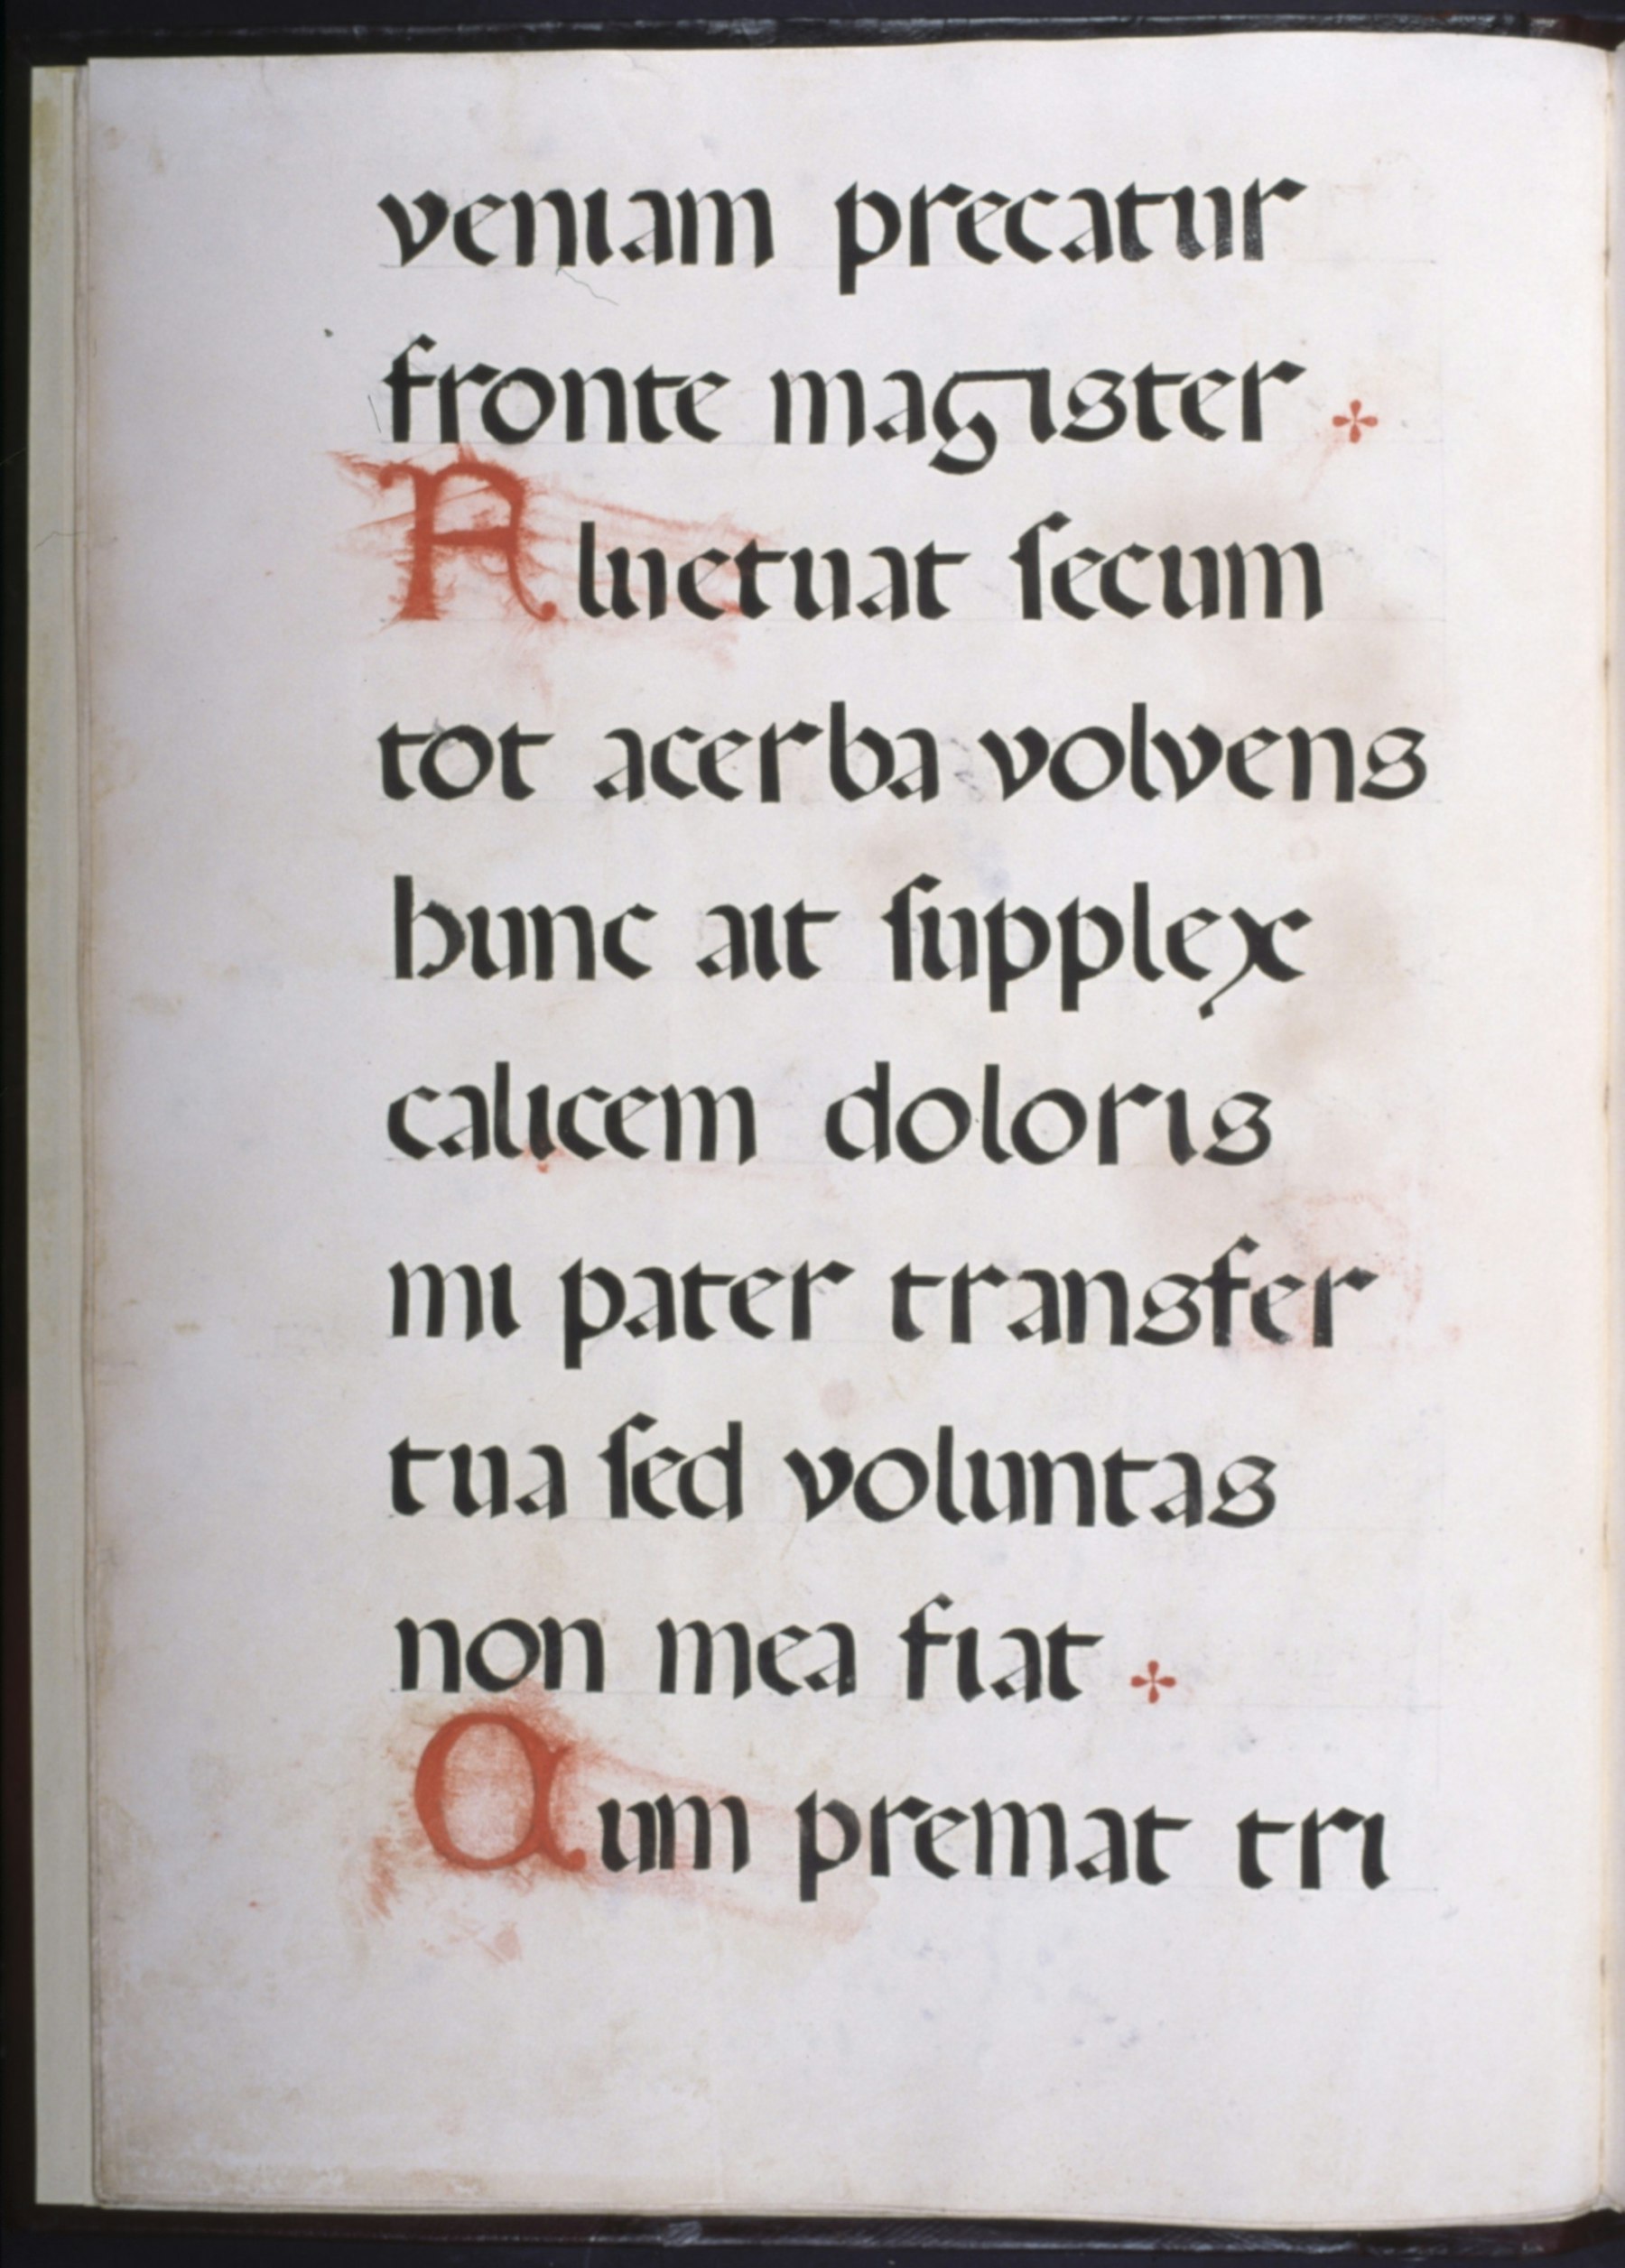 veniam precatur
fronte magister
Aluctuat secum
tot acerba volvens
hunc ait supplex
calicem doloris
mi pater transfer
tua sed voluntas
non mea fiat
Aum premat tri